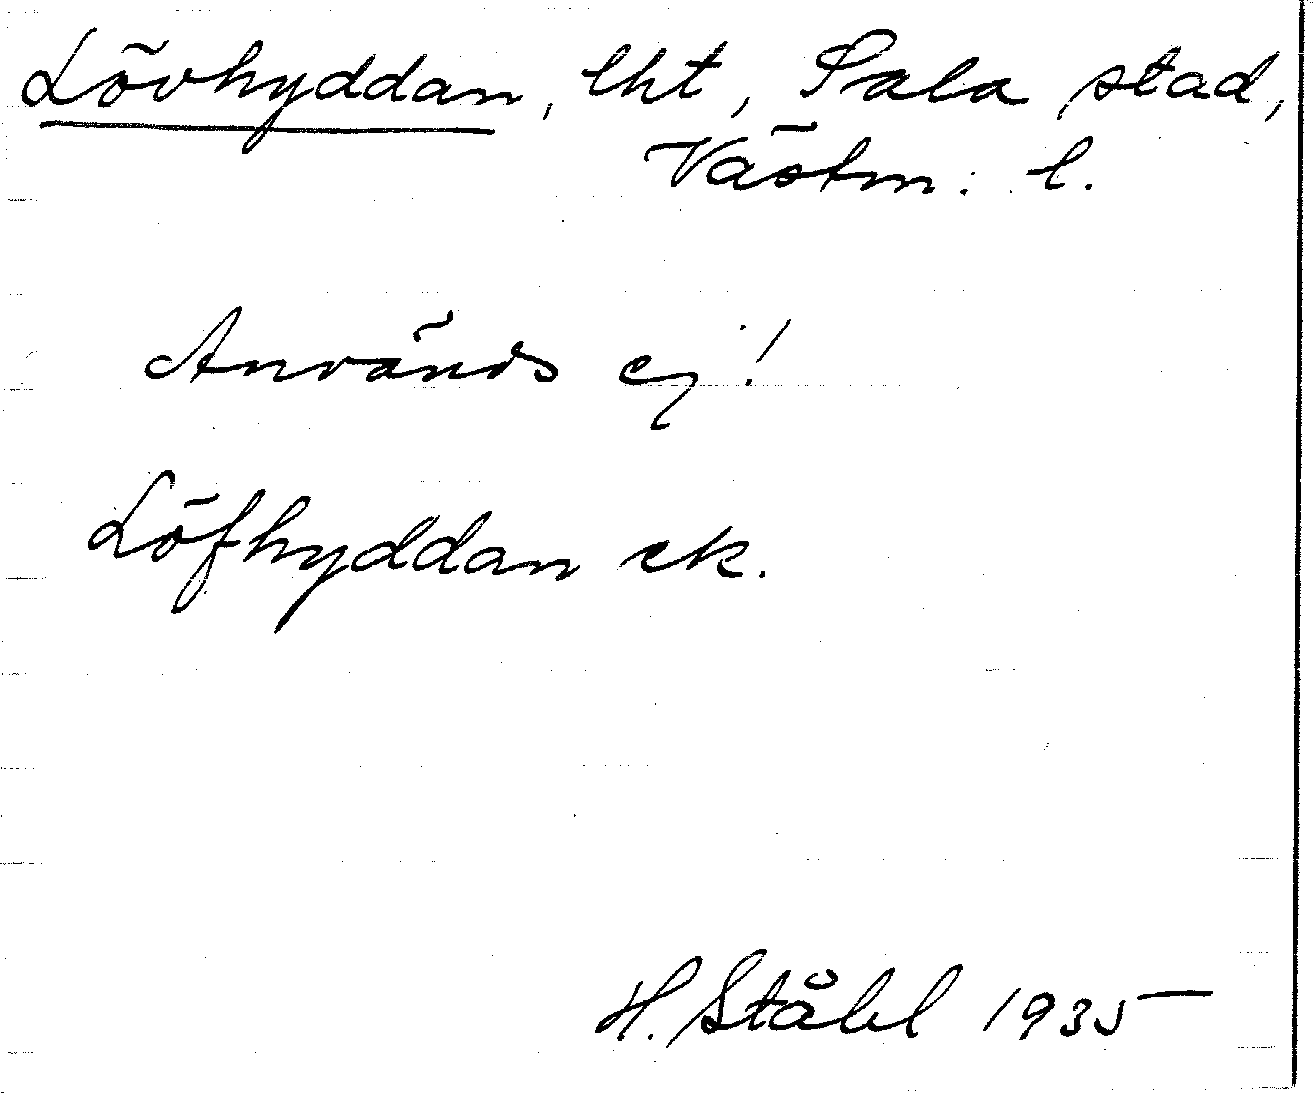 Lövhyddan, lht, Sala stad,
Västm. l.
Används ej!
Löfhyddan ek.
H. Ståhl 1935